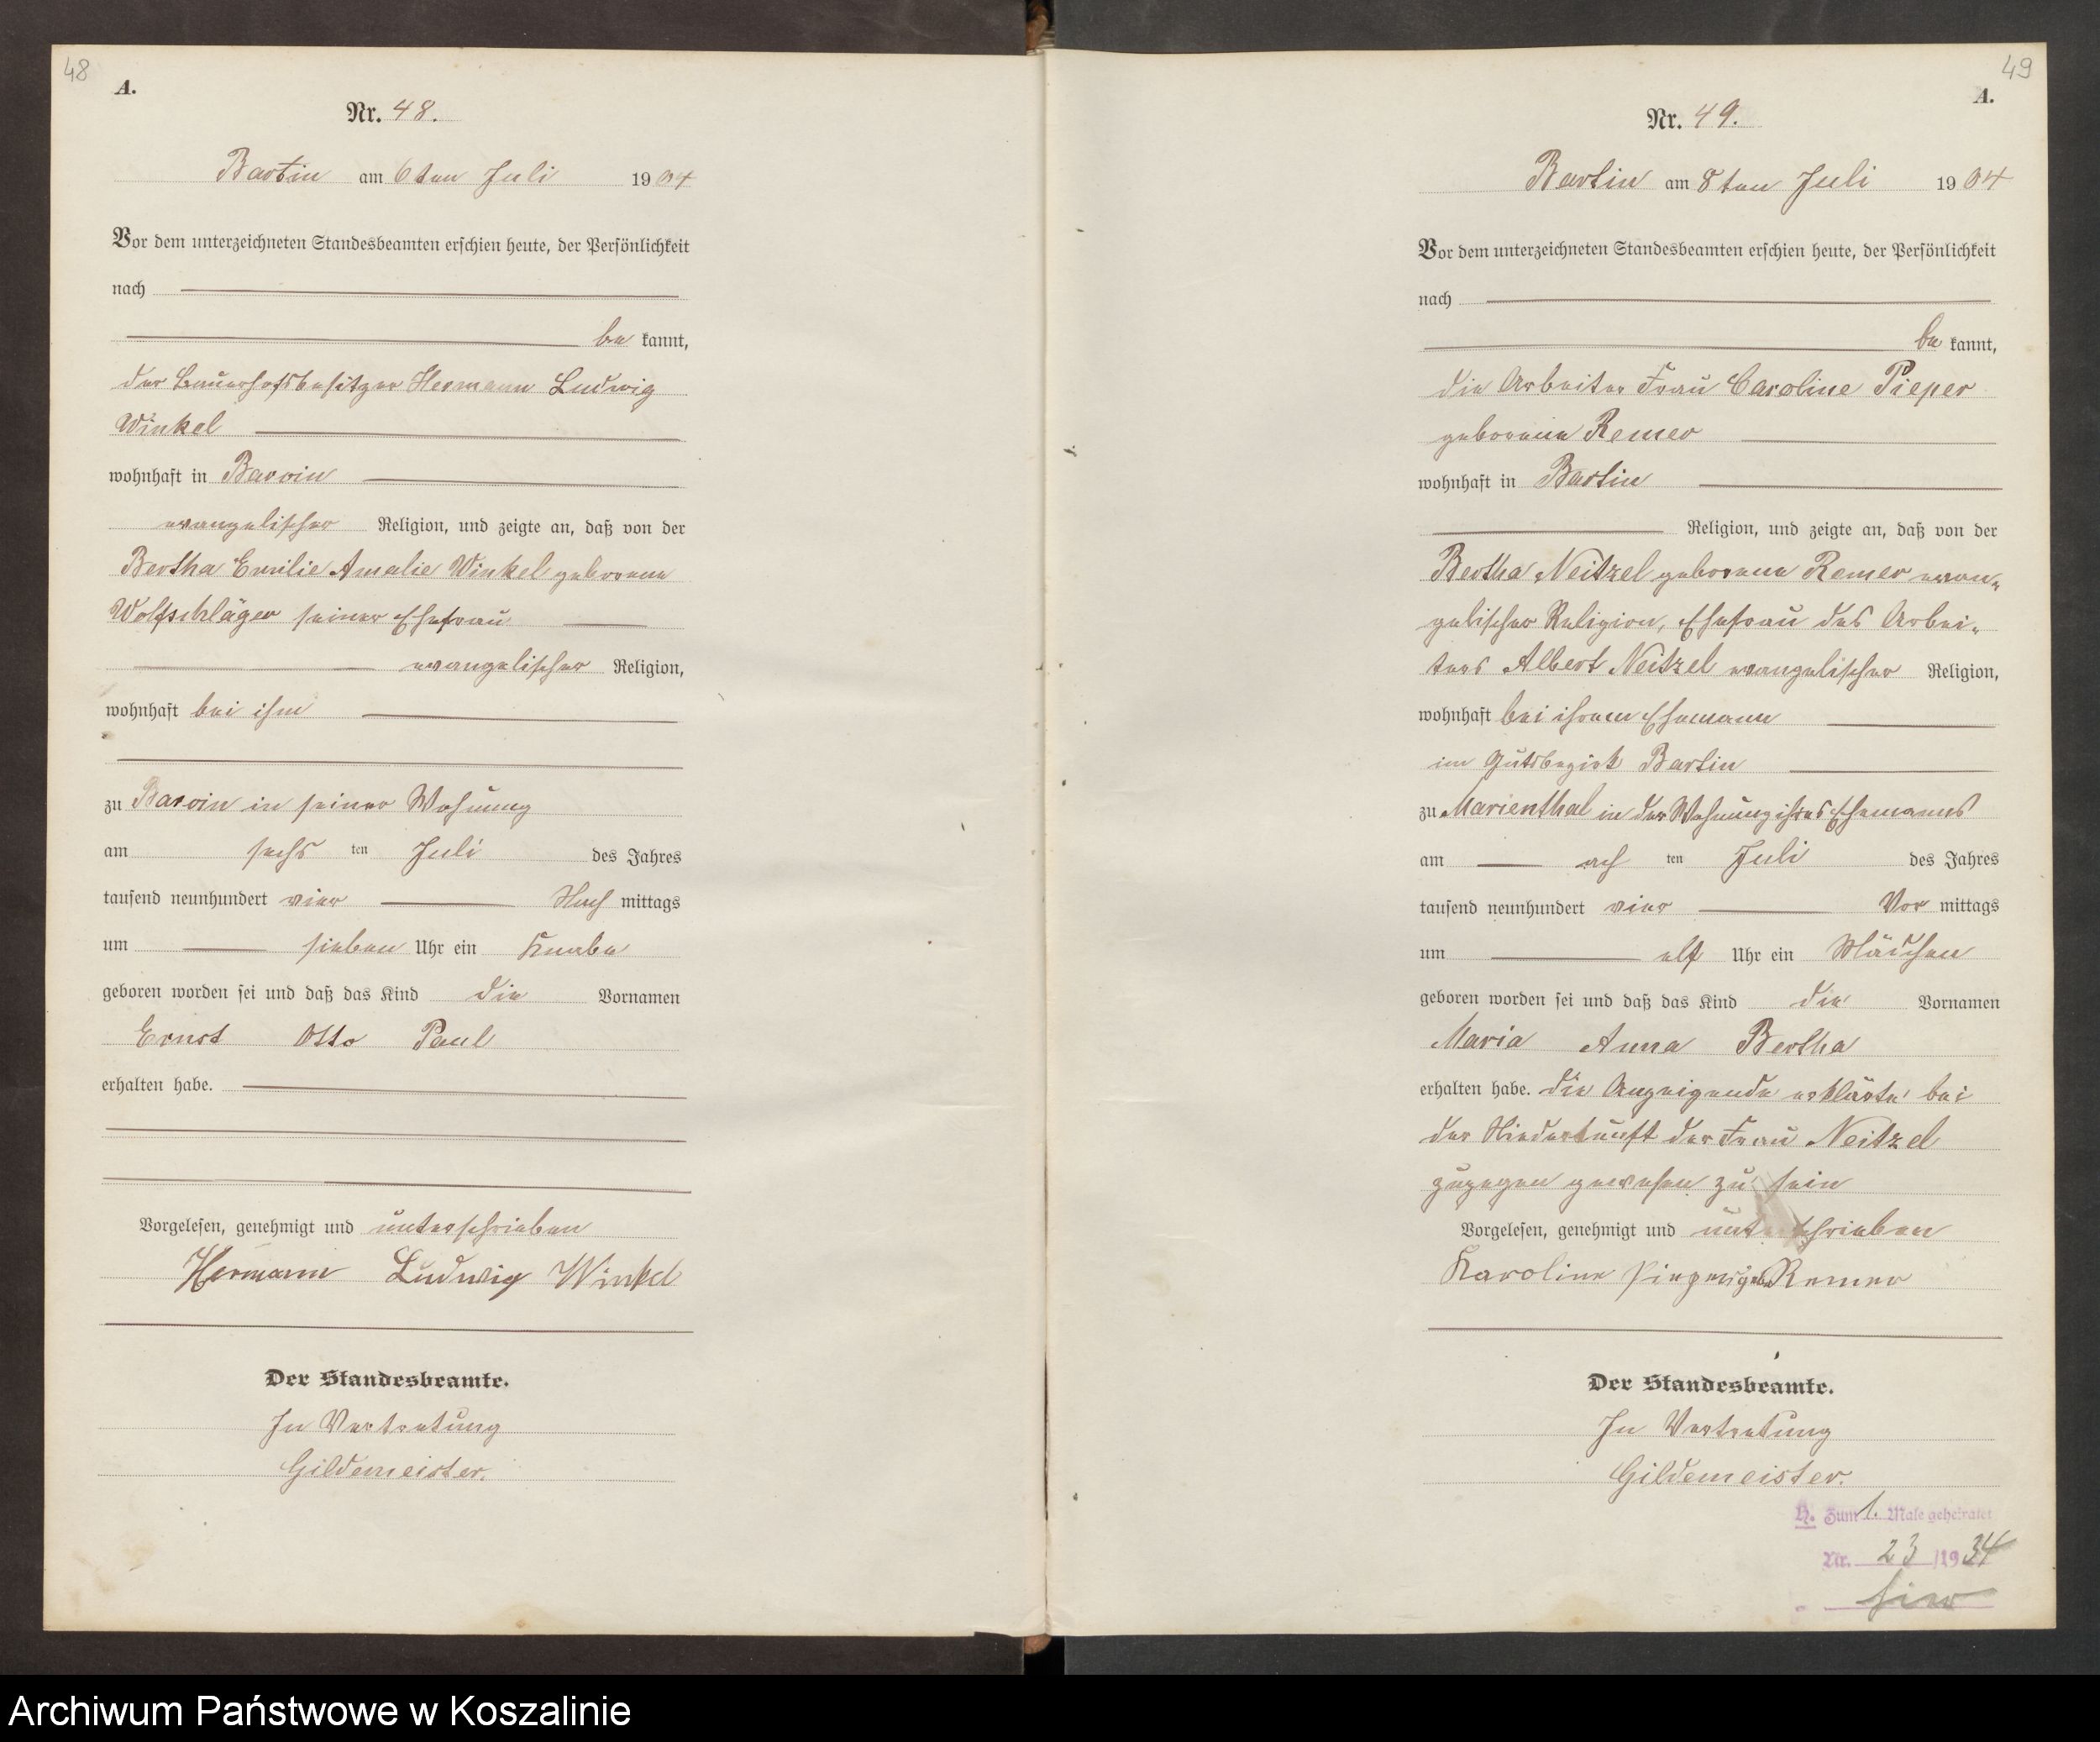 48
A.
Nr. 48.
Bartin am 6ten Juli 1904
Vor dem unterzeichneten Standesbeamten erschien heute, der Persönlichkeit
nach
be kannt,
der Bauerhofsbesitzer Hermann Ludwig
Winkel
wohnhaft in Barvin
evangelischer Religion, und zeigte an, daß von der
Bertha Emilie Amalie Winkel geborene
Wolfschläger seiner Ehefrau
evangelischer Religion,
wohnhaft bei ihm
zu Barvin in seiner Wohnung
am sechs ten Juli des Jahres
tausend neunhundert vier Nach mittags
um sieben Uhr ein Knabe
geboren worden sei und daß das Kind die Vornamen
Ernst Otto Paul
erhalten habe.
Vorgelesen, genehmigt und unterschrieben
Hermann Ludwig Winkel
Der Standesbeamte.
In Vertretung
Gildemeister.
49
A.
Nr. 49.
Bartin am 8ten Juli 1904
Vor dem unterzeichneten Standesbeamten erschien heute, der Persönlichkeit
nach
be kannt,
die Arbeiter Frau Caroline Pieper
geborene Remer
wohnhaft in Bartin
Religion, und zeigte an, daß von der
Bertha Neitzel geborene Remer evan-
gelischer Religion, Ehefrau des Arbei-
ters Albert Neitzel evangelischer Religion,
wohnhaft bei ihrem Ehemann
im Gutsbezirk Bartin
zu Marienthal in der Wohnung ihres Ehemanns
am ach ten Juli des Jahres
tausend neunhundert vier Vor mittags
um elf Uhr ein Mädchen
geboren worden sei und daß das Kind die Vornamen
Maria Anna Bertha
erhalten habe. Die Anzeigende erklärte bei
der Niederkunft der Frau Neitzel
zugegen gewesen zu sein
Vorgelesen, genehmigt und unterschrieben
Karoline Pieper geb. Remer
Der Standesbeamte.
In Vertretung
Gildemeister.
H. Zum 1. Male geheiratet
Nr. 23 /1934
Archiwum Państwowe w Koszalinie